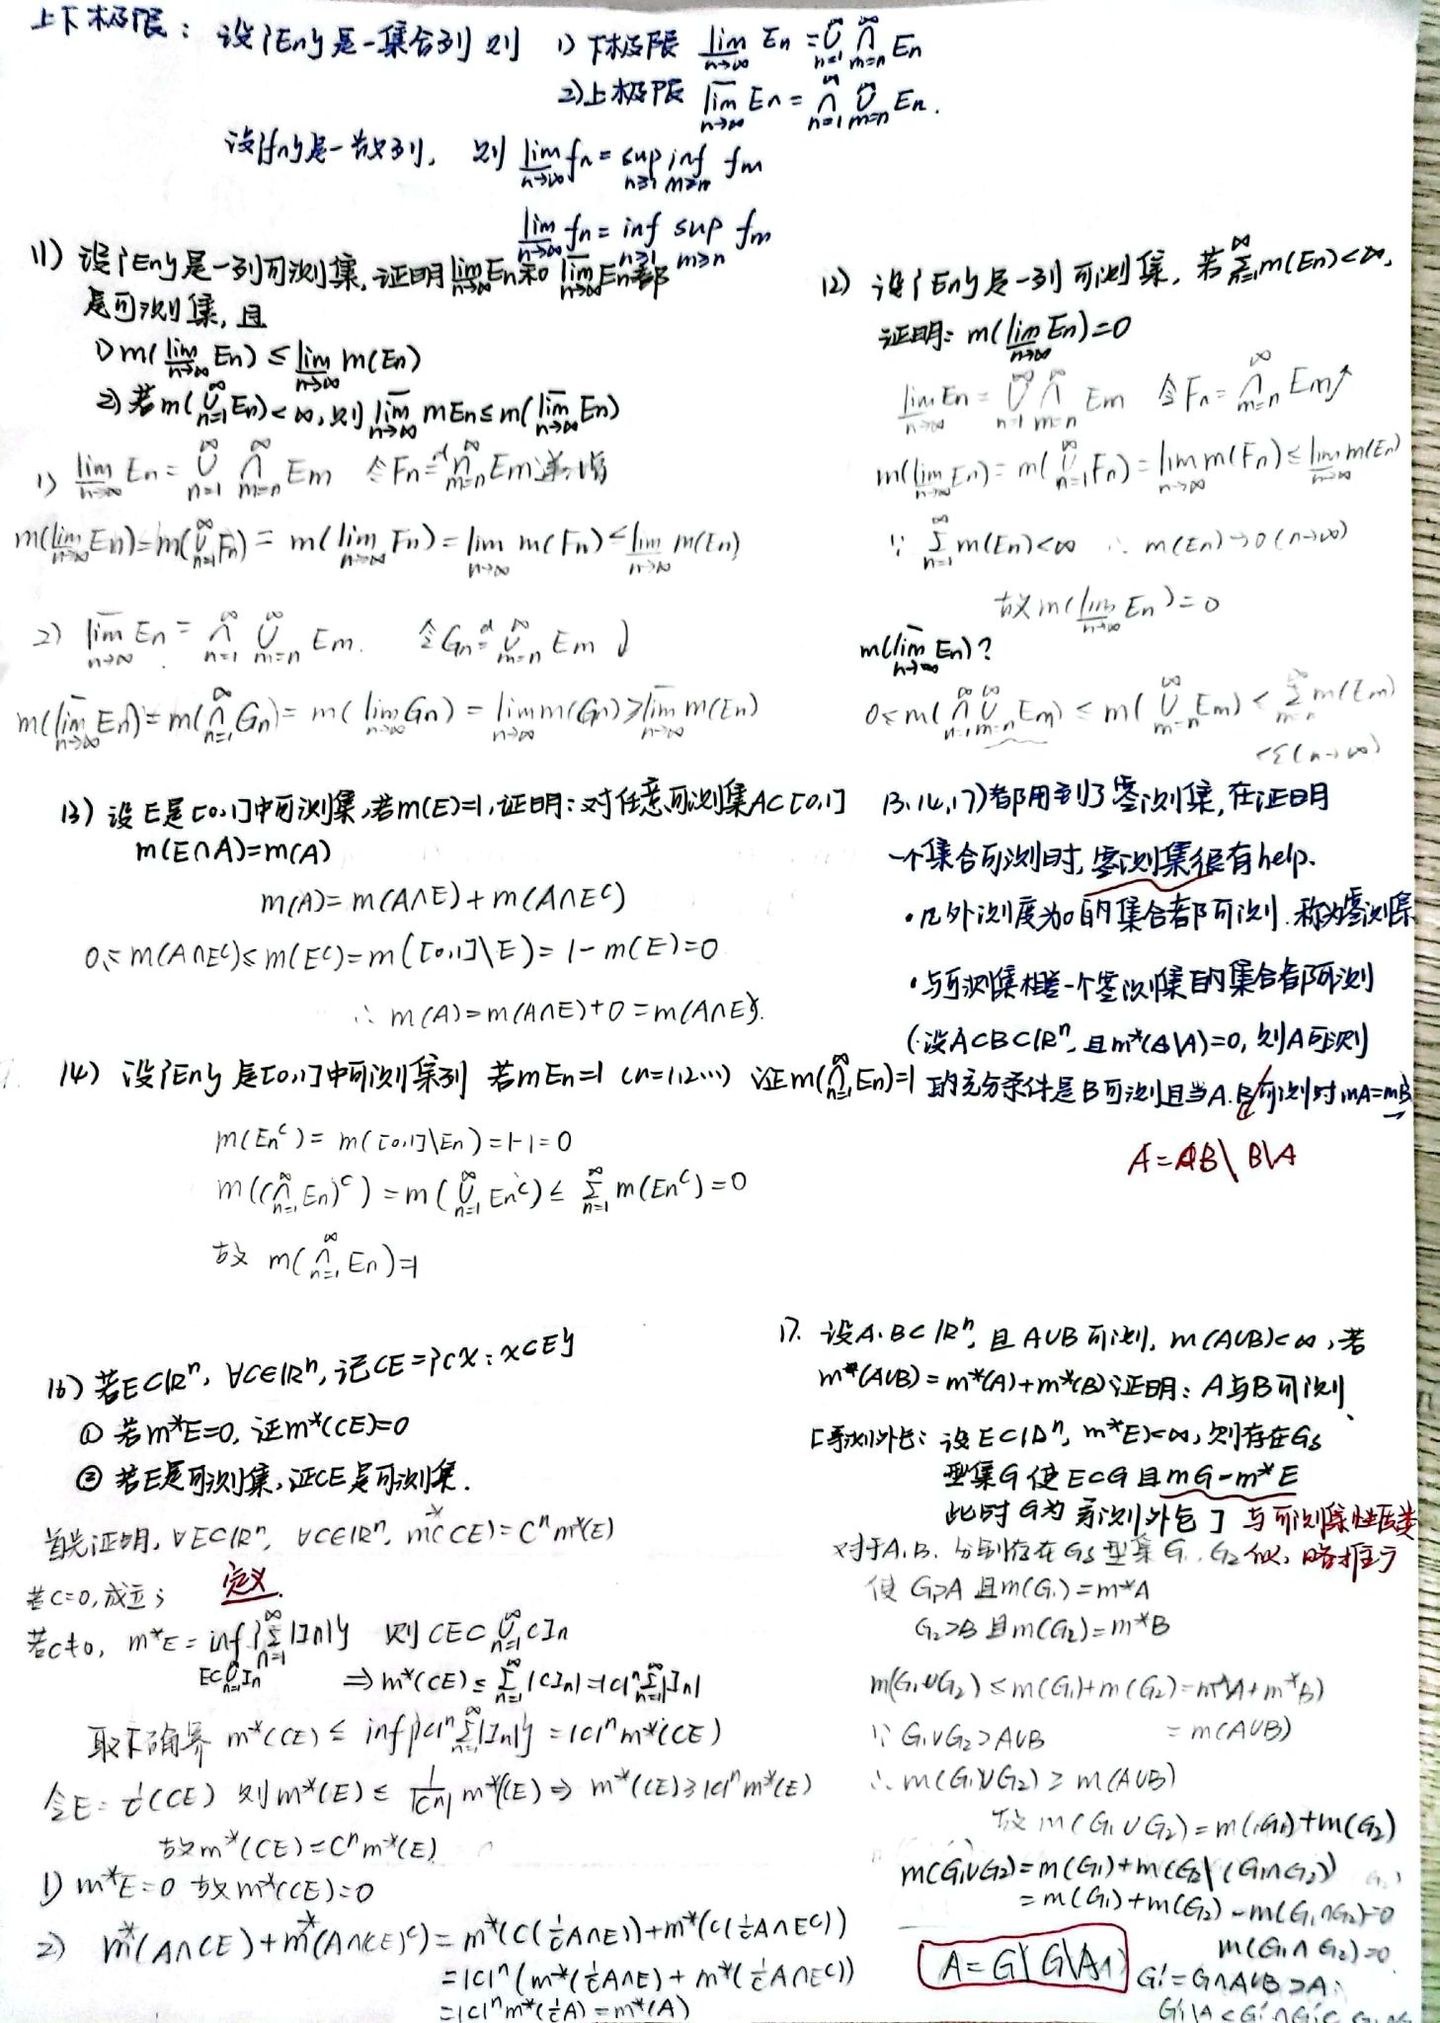 上下极限：设{En}是一集合列 则 1) 下极限 \underline{lim}_{n→∞} En = ∪_{n=1}^∞ ∩_{m=n}^∞ En
2) 上极限 \overline{lim}_{n→∞} En = ∩_{n=1}^∞ ∪_{m=n}^∞ En.
设{fn}是一数列, 则 \underline{lim}_{n→∞} fn = sup_{n≥1} inf_{m≥n} fm
\overline{lim}_{n→∞} fn = inf_{n≥1} sup_{m≥n} fm
11) 设{En}是一列可测集, 证明 \underline{lim}_{n→∞} En和 \overline{lim}_{n→∞} En都
是可测集, 且
1) m(\underline{lim}_{n→∞} En) ≤ \underline{lim}_{n→∞} m(En)
2) 若m(∪_{n=1}^∞ En)<∞, 则 \overline{lim}_{n→∞} mEn ≤ m(\overline{lim}_{n→∞} En)
1) \underline{lim}_{n→∞} En = ∪_{n=1}^∞ ∩_{m=n}^∞ Em 令Fn =^d ∩_{m=n}^∞ Em 递增
m(\underline{lim}_{n→∞} En) = m(∪_{n=1}^∞ Fn) = m(lim_{n→∞} Fn) = lim_{n→∞} m(Fn) ≤ \underline{lim}_{n→∞} m(En)
2) \overline{lim}_{n→∞} En = ∩_{n=1}^∞ ∪_{m=n}^∞ Em. 令Gn =^d ∪_{m=n}^∞ Em ↓
m(\overline{lim}_{n→∞} En) = m(∩_{n=1}^∞ Gn) = m(lim_{n→∞} Gn) = lim_{n→∞} m(Gn) ≥ \overline{lim}_{n→∞} m(En)
12) 设{En}是一列可测集, 若∑_{n=1}^∞ m(En)<∞,
证明: m(\underline{lim}_{n→∞} En)=0
\underline{lim}_{n→∞} En = ∪_{n=1}^∞ ∩_{m=n}^∞ Em 令Fn = ∩_{m=n}^∞ Em↗
m(\underline{lim}_{n→∞} En) = m(∪_{n=1}^∞ Fn) = lim_{n→∞} m(Fn) ≤ \underline{lim}_{n→∞} m(En)
∵ ∑_{n=1}^∞ m(En)<∞ ∴ m(En)→0 (n→∞)
故 m(\underline{lim}_{n→∞} En) = 0
m(\overline{lim}_{n→∞} En)?
0≤ m(∩_{n=1}^∞ ∪_{m=n}^∞ Em) ≤ m(∪_{m=n}^∞ Em) ≤ ∑_{m=n}^∞ m(Em)
<ε(n→∞)
13) 设E是[0,1]中可测集,若m(E)=1,证明: 对任意可测集A⊂[0,1]
m(E∩A)=m(A)
m(A) = m(A∩E) + m(A∩E^c)
0≤ m(A∩E^c) ≤ m(E^c) = m([0,1]\E) = 1-m(E)=0
∴ m(A) = m(A∩E)+0 = m(A∩E).
13.14,17)都用到了零测集,在证明
一个集合可测时,零测集很有help.
·凡外测度为0的集合都可测.称为零测集
·与可测集相差一个零测集的集合都可测
(设A⊂B⊂R^n, 且m*(B\A)=0, 则A可测
的充分条件是B可测且当A.B可测时mA=mB
A=AB\ B\A
14) 设{En}是[0,1]中可测集列 若mEn=1 (n=1,2…) 证m(∩_{n=1}^∞ En)=1
m(En^c) = m([0,1]\En) = 1-1=0
m((∩_{n=1}^∞ En)^c) = m(∪_{n=1}^∞ En^c) ≤ ∑_{n=1}^∞ m(En^c)=0
故 m(∩_{n=1}^∞ En)=1
16) 若E⊂R^n, ∀C∈R^n, 记CE={Cx: x∈E}
① 若m*E=0, 证m*(CE)=0
② 若E是可测集,证CE是可测集.
首先证明, ∀E⊂R^n, ∀C∈R^n, m*(CE)=C^n m*(E)
若C=0,成立; 定义
若C≠0, m*E = inf_{E⊂∪_{n=1}^∞ In} {∑_{n=1}^∞ |In|} 则 CE⊂∪_{n=1}^∞ CIn
⇒ m*(CE) ≤ ∑_{n=1}^∞ |CIn| = |C|^n ∑_{n=1}^∞ |In|
取下确界 m*(CE) ≤ inf{|C|^n ∑_{n=1}^∞ |In|} = |C|^n m*(CE)
令E=1/C(CE) 则m*(E) ≤ 1/|C^n| m*(CE) ⇒ m*(CE) ≥ |C|^n m*(E)
故m*(CE)=C^n m*(E)
1) m*E=0 故m*(CE)=0
2) m*(A∩CE)+m*(A∩(CE)^c) = m*(C(1/C A∩E))+m*(C(1/C A∩E^c))
=|C|^n (m*(1/C A∩E) + m*(1/C A∩E^c))
=|C|^n m*(1/C A) = m*(A)
17. 设A.B⊂R^n, 且A∪B可测, m(A∪B)<∞, 若
m*(A∪B)=m*(A)+m*(B) 证明: A与B可测.
[等测外包: 设E⊂R^n, m*E<∞, 则存在Gδ
型集G使E⊂G且mG=m*E
此时G为等测外包] 与可测集性质类
对于A.B. 分别存在Gδ型集G1, G2 似, 略推广
使 G1⊃A 且m(G1)=m*A
G2⊃B 且m(G2)=m*B
m(G1∪G2) ≤ m(G1)+m(G2) = m*A+m*B
∵ G1∪G2⊃A∪B = m(A∪B)
∴ m(G1∪G2) ≥ m(A∪B)
故 m(G1∪G2) = m(G1)+m(G2)
m(G1∪G2) = m(G1)+m(G2\(G1∩G2))
= m(G1)+m(G2)-m(G1∩G2)=0
m(G1∩G2)=0
A=G\(G\A) G1'=G∩A∪B⊃A